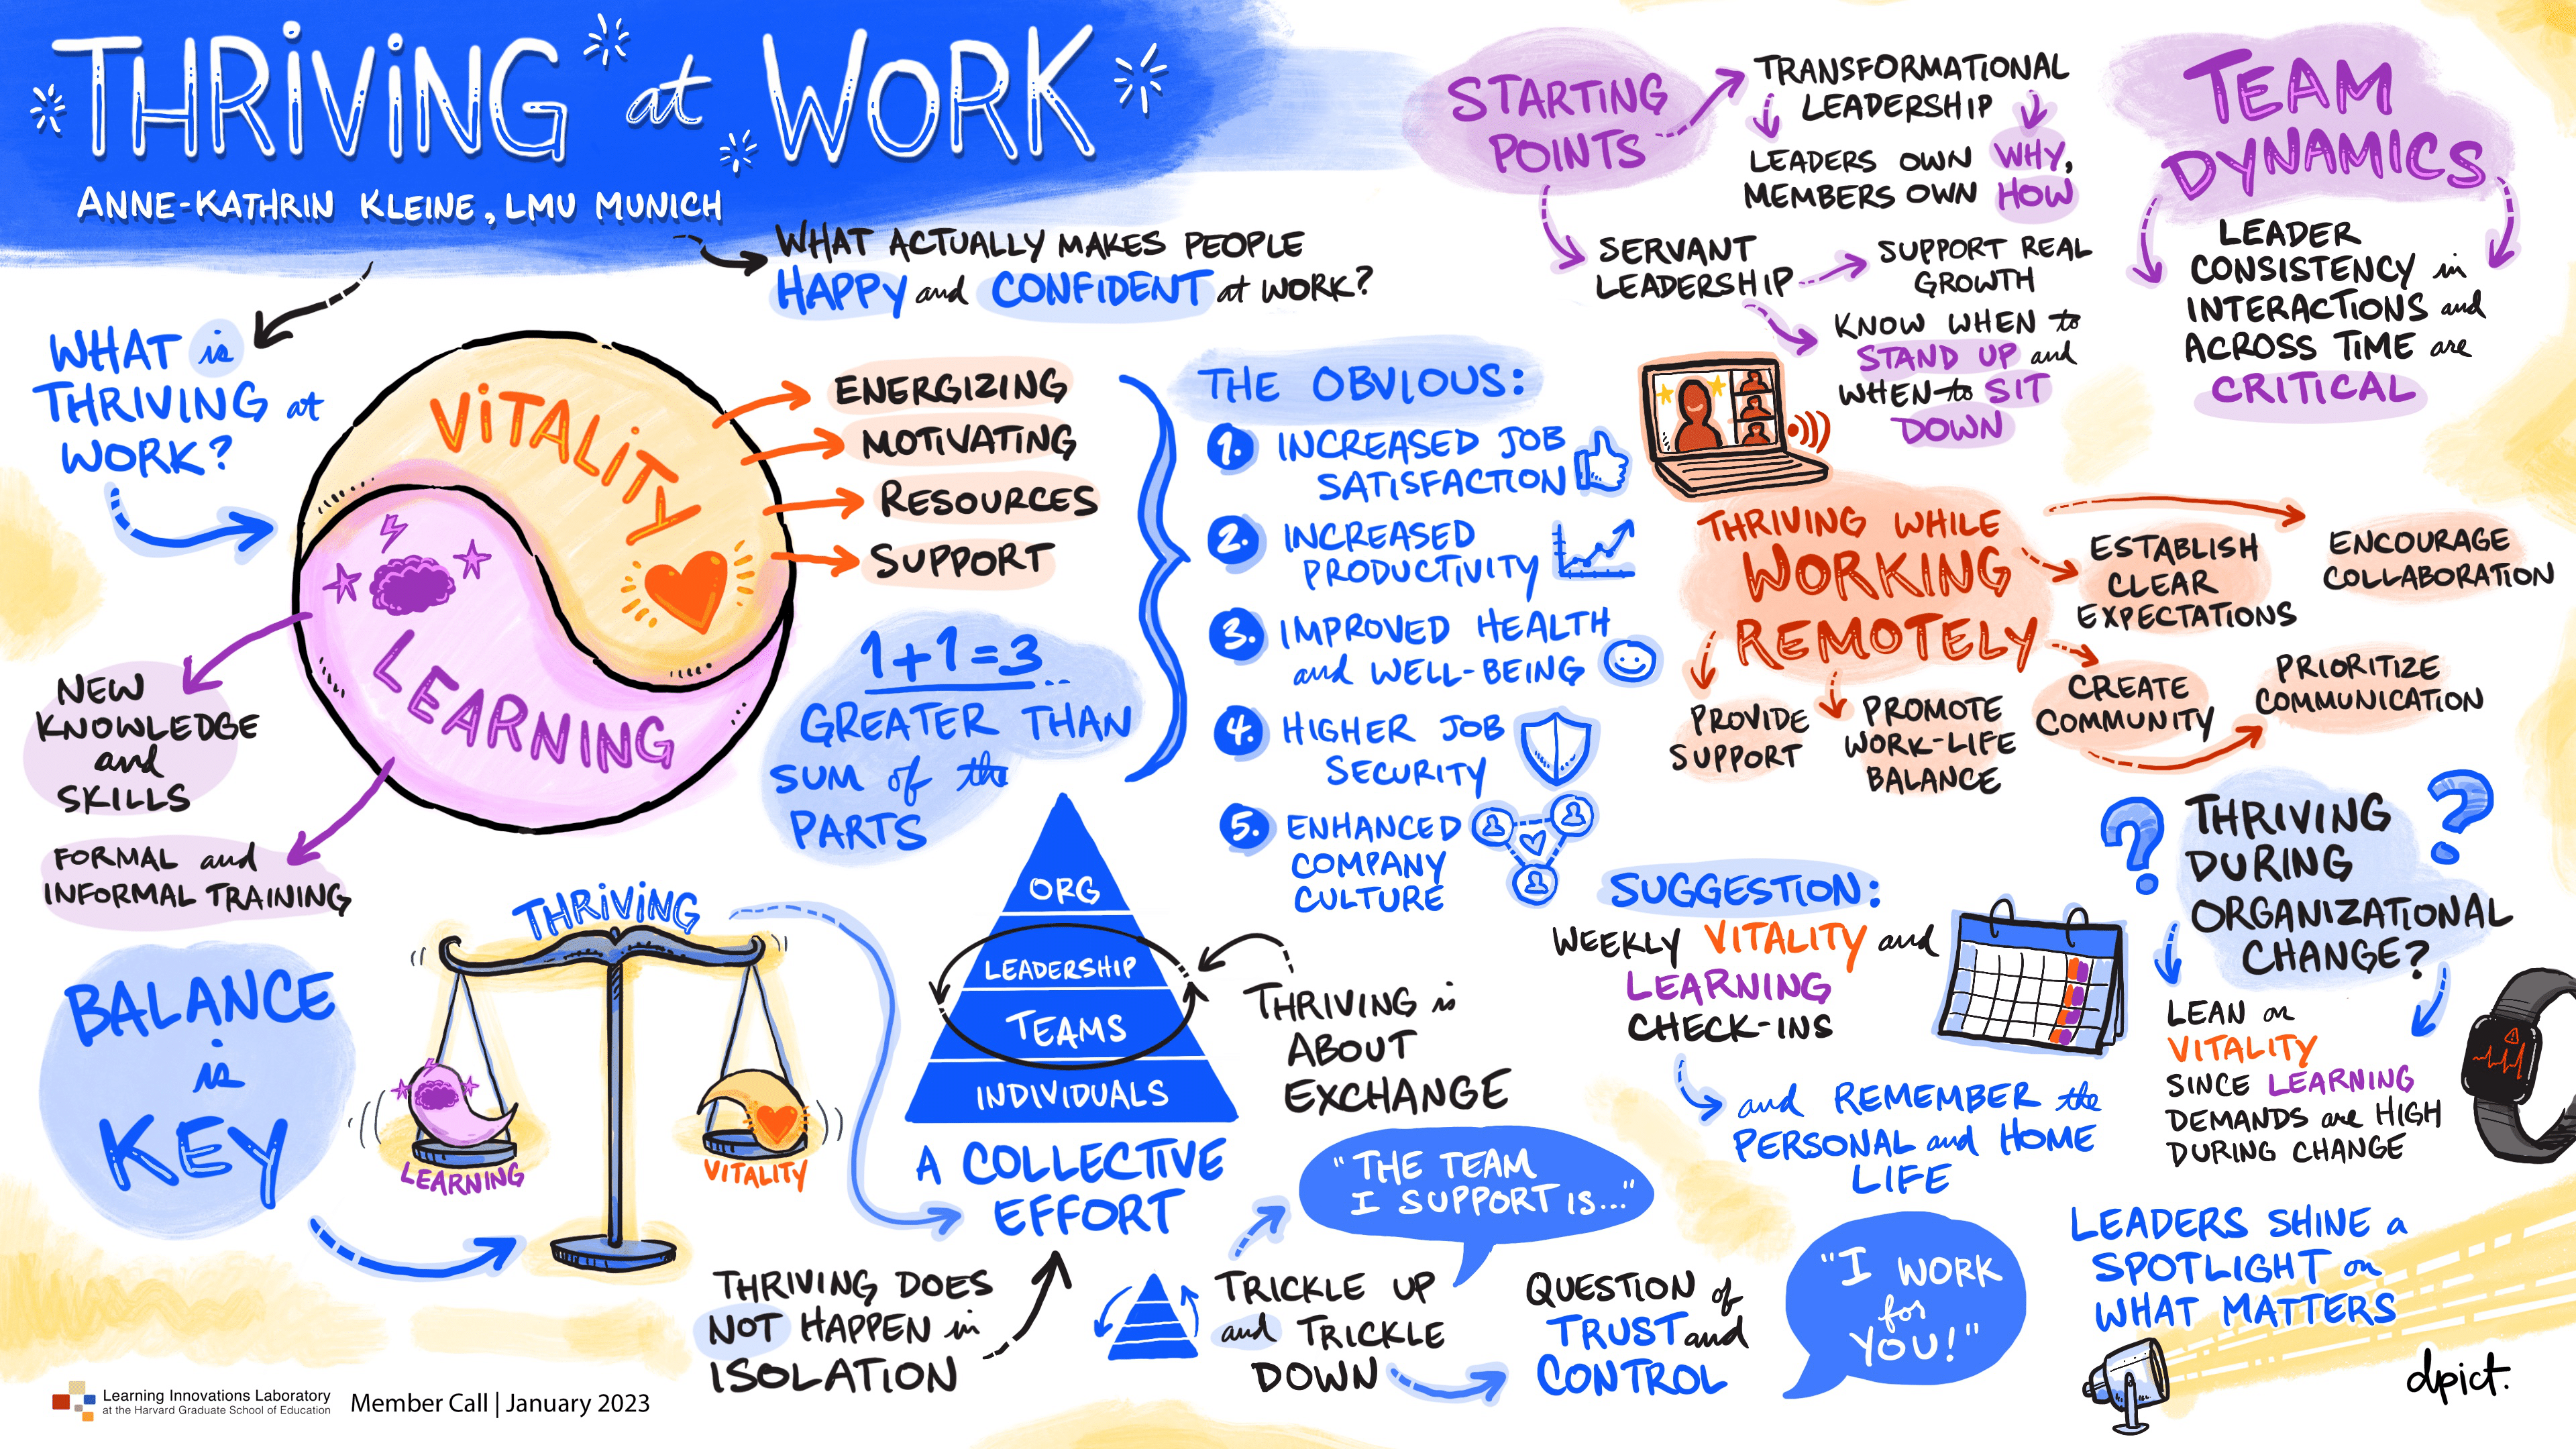 THRIVING at WORK
ANNE-KATHRIN KLEINE, LMU MUNICH
WHAT ACTUALLY MAKES PEOPLE
HAPPY and CONFIDENT at WORK?
WHAT is
THRIVING at
WORK?
VITALITY
LEARNING
ENERGIZING
MOTIVATING
RESOURCES
SUPPORT
NEW
KNOWLEDGE
and
SKILLS
FORMAL and
INFORMAL TRAINING
1+1=3
GREATER THAN
SUM of the
PARTS
THE OBVIOUS:
1. INCREASED JOB
SATISFACTION
2. INCREASED
PRODUCTIVITY
3. IMPROVED HEALTH
and WELL-BEING
4. HIGHER JOB
SECURITY
5. ENHANCED
COMPANY
CULTURE
STARTING
POINTS
TRANSFORMATIONAL
LEADERSHIP
LEADERS OWN WHY,
MEMBERS OWN HOW
SERVANT
LEADERSHIP
SUPPORT REAL
GROWTH
KNOW WHEN to
STAND UP and
WHEN to SIT
DOWN
TEAM
DYNAMICS
LEADER
CONSISTENCY in
INTERACTIONS and
ACROSS TIME are
CRITICAL
THRIVING WHILE
WORKING
REMOTELY
ESTABLISH
CLEAR
EXPECTATIONS
ENCOURAGE
COLLABORATION
PROVIDE
SUPPORT
PROMOTE
WORK-LIFE
BALANCE
CREATE
COMMUNITY
PRIORITIZE
COMMUNICATION
BALANCE
is
KEY
THRIVING
LEARNING
VITALITY
ORG
LEADERSHIP
TEAMS
INDIVIDUALS
A COLLECTIVE
EFFORT
THRIVING is
ABOUT
EXCHANGE
THRIVING DOES
NOT HAPPEN in
ISOLATION
TRICKLE UP
and TRICKLE
DOWN
"THE TEAM
I SUPPORT IS..."
QUESTION of
TRUST and
CONTROL
"I WORK
for
YOU!"
SUGGESTION:
WEEKLY VITALITY and
LEARNING
CHECK-INS
and REMEMBER the
PERSONAL and HOME
LIFE
? THRIVING ?
DURING
ORGANIZATIONAL
CHANGE?
LEAN on
VITALITY
SINCE LEARNING
DEMANDS are HIGH
DURING CHANGE
LEADERS SHINE a
SPOTLIGHT on
WHAT MATTERS
dpict.
Learning Innovations Laboratory
at the Harvard Graduate School of Education
Member Call | January 2023